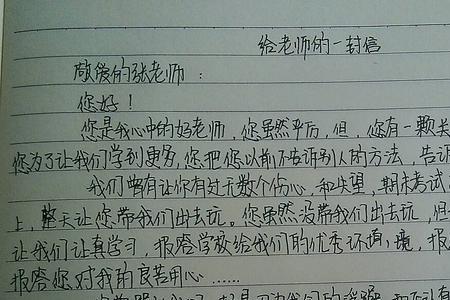 给老师的一封信
敬爱的张老师：
您好！
您是我心中的好老师，您虽然严厉，但，您有一颗关
您为了让我们学到更多，您把您以前不告诉别人的方法，告诉
我们曾有让你有过无数个伤心，和失望，期末考试
上，整天让您带我们出去玩。您虽然没带我们出去玩，但
让我们认真学习，报答学校给我们的优秀环境，报
报答您对我的良苦用心……